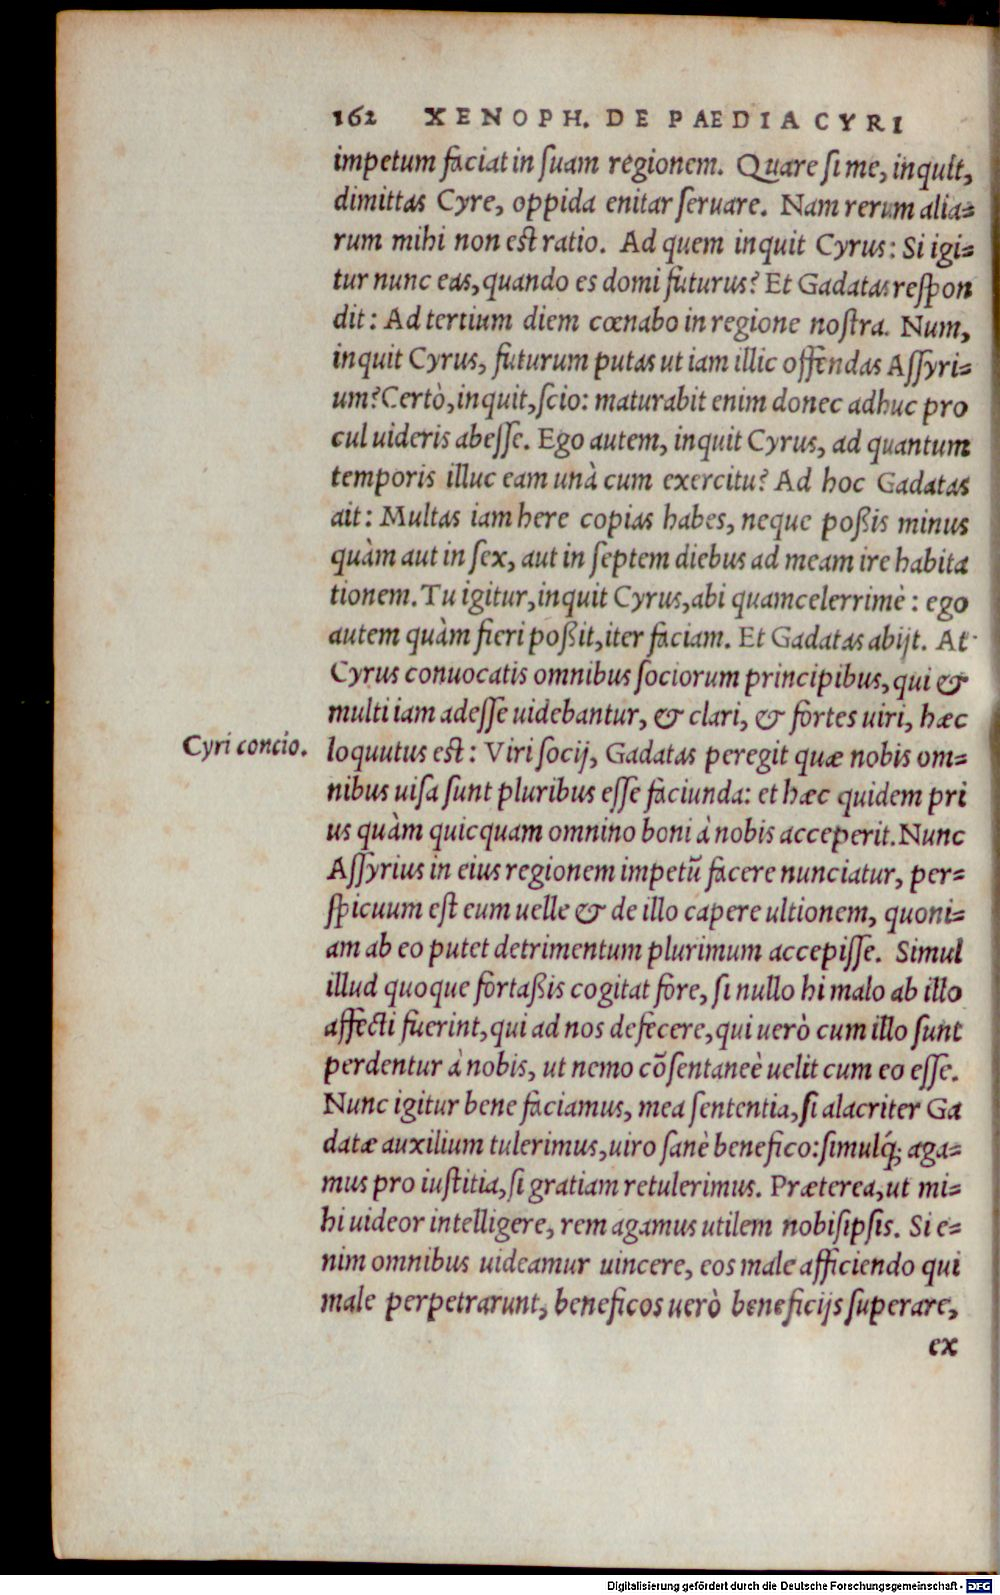 162 XENOPH. DE PAEDIA CYRI
impetum faciat in suam regionem. Quare si me, inquit,
dimittas Cyre, oppida enitar seruare. Nam rerum alia=
rum mihi non est ratio. Ad quem inquit Cyrus: Si igi=
tur nunc eas, quando es domi futurus? Et Gadatas respon
dit: Ad tertium diem cœnabo in regione nostra. Num,
inquit Cyrus, futurum putas ut iam illic offendas Assyri=
um? Certò, inquit, scio: maturabit enim donec adhuc pro
cul uideris abesse. Ego autem, inquit Cyrus, ad quantum
temporis illuc eam unà cum exercitu? Ad hoc Gadatas
ait: Multas iam here copias habes, neque poßis minus
quàm aut in sex, aut in septem diebus ad meam ire habita
tionem. Tu igitur, inquit Cyrus, abi quamcelerrimè: ego
autem quàm fieri poßit, iter faciam. Et Gadatas abijt. At
Cyrus conuocatis omnibus sociorum principibus, qui &
multi iam adesse uidebantur, & clari, & fortes uiri, hæc
Cyri concio.
loquutus est: Viri socij, Gadatas peregit quæ nobis om=
nibus uisa sunt pluribus esse faciunda: et hæc quidem pri
us quàm quicquam omnino boni à nobis acceperit. Nunc
Assyrius in eius regionem impetū facere nunciatur, per=
spicuum est eum uelle & de illo capere ultionem, quoni=
am ab eo putet detrimentum plurimum accepisse. Simul
illud quoque fortaßis cogitat fore, si nullo hi malo ab illo
affecti fuerint, qui ad nos defecere, qui uerò cum illo sunt
perdentur à nobis, ut nemo cōsentaneè uelit cum eo esse.
Nunc igitur bene faciamus, mea sententia, si alacriter Ga
datæ auxilium tulerimus, uiro sanè benefico: simulq́; aga=
mus pro iustitia, si gratiam retulerimus. Præterea, ut mi=
hi uideor intelligere, rem agamus utilem nobisipsis. Si e=
nim omnibus uideamur uincere, eos male afficiendo qui
male perpetrarunt, beneficos uerò beneficijs superare,
ex
Digitalisierung gefördert durch die Deutsche Forschungsgemeinschaft - DFG